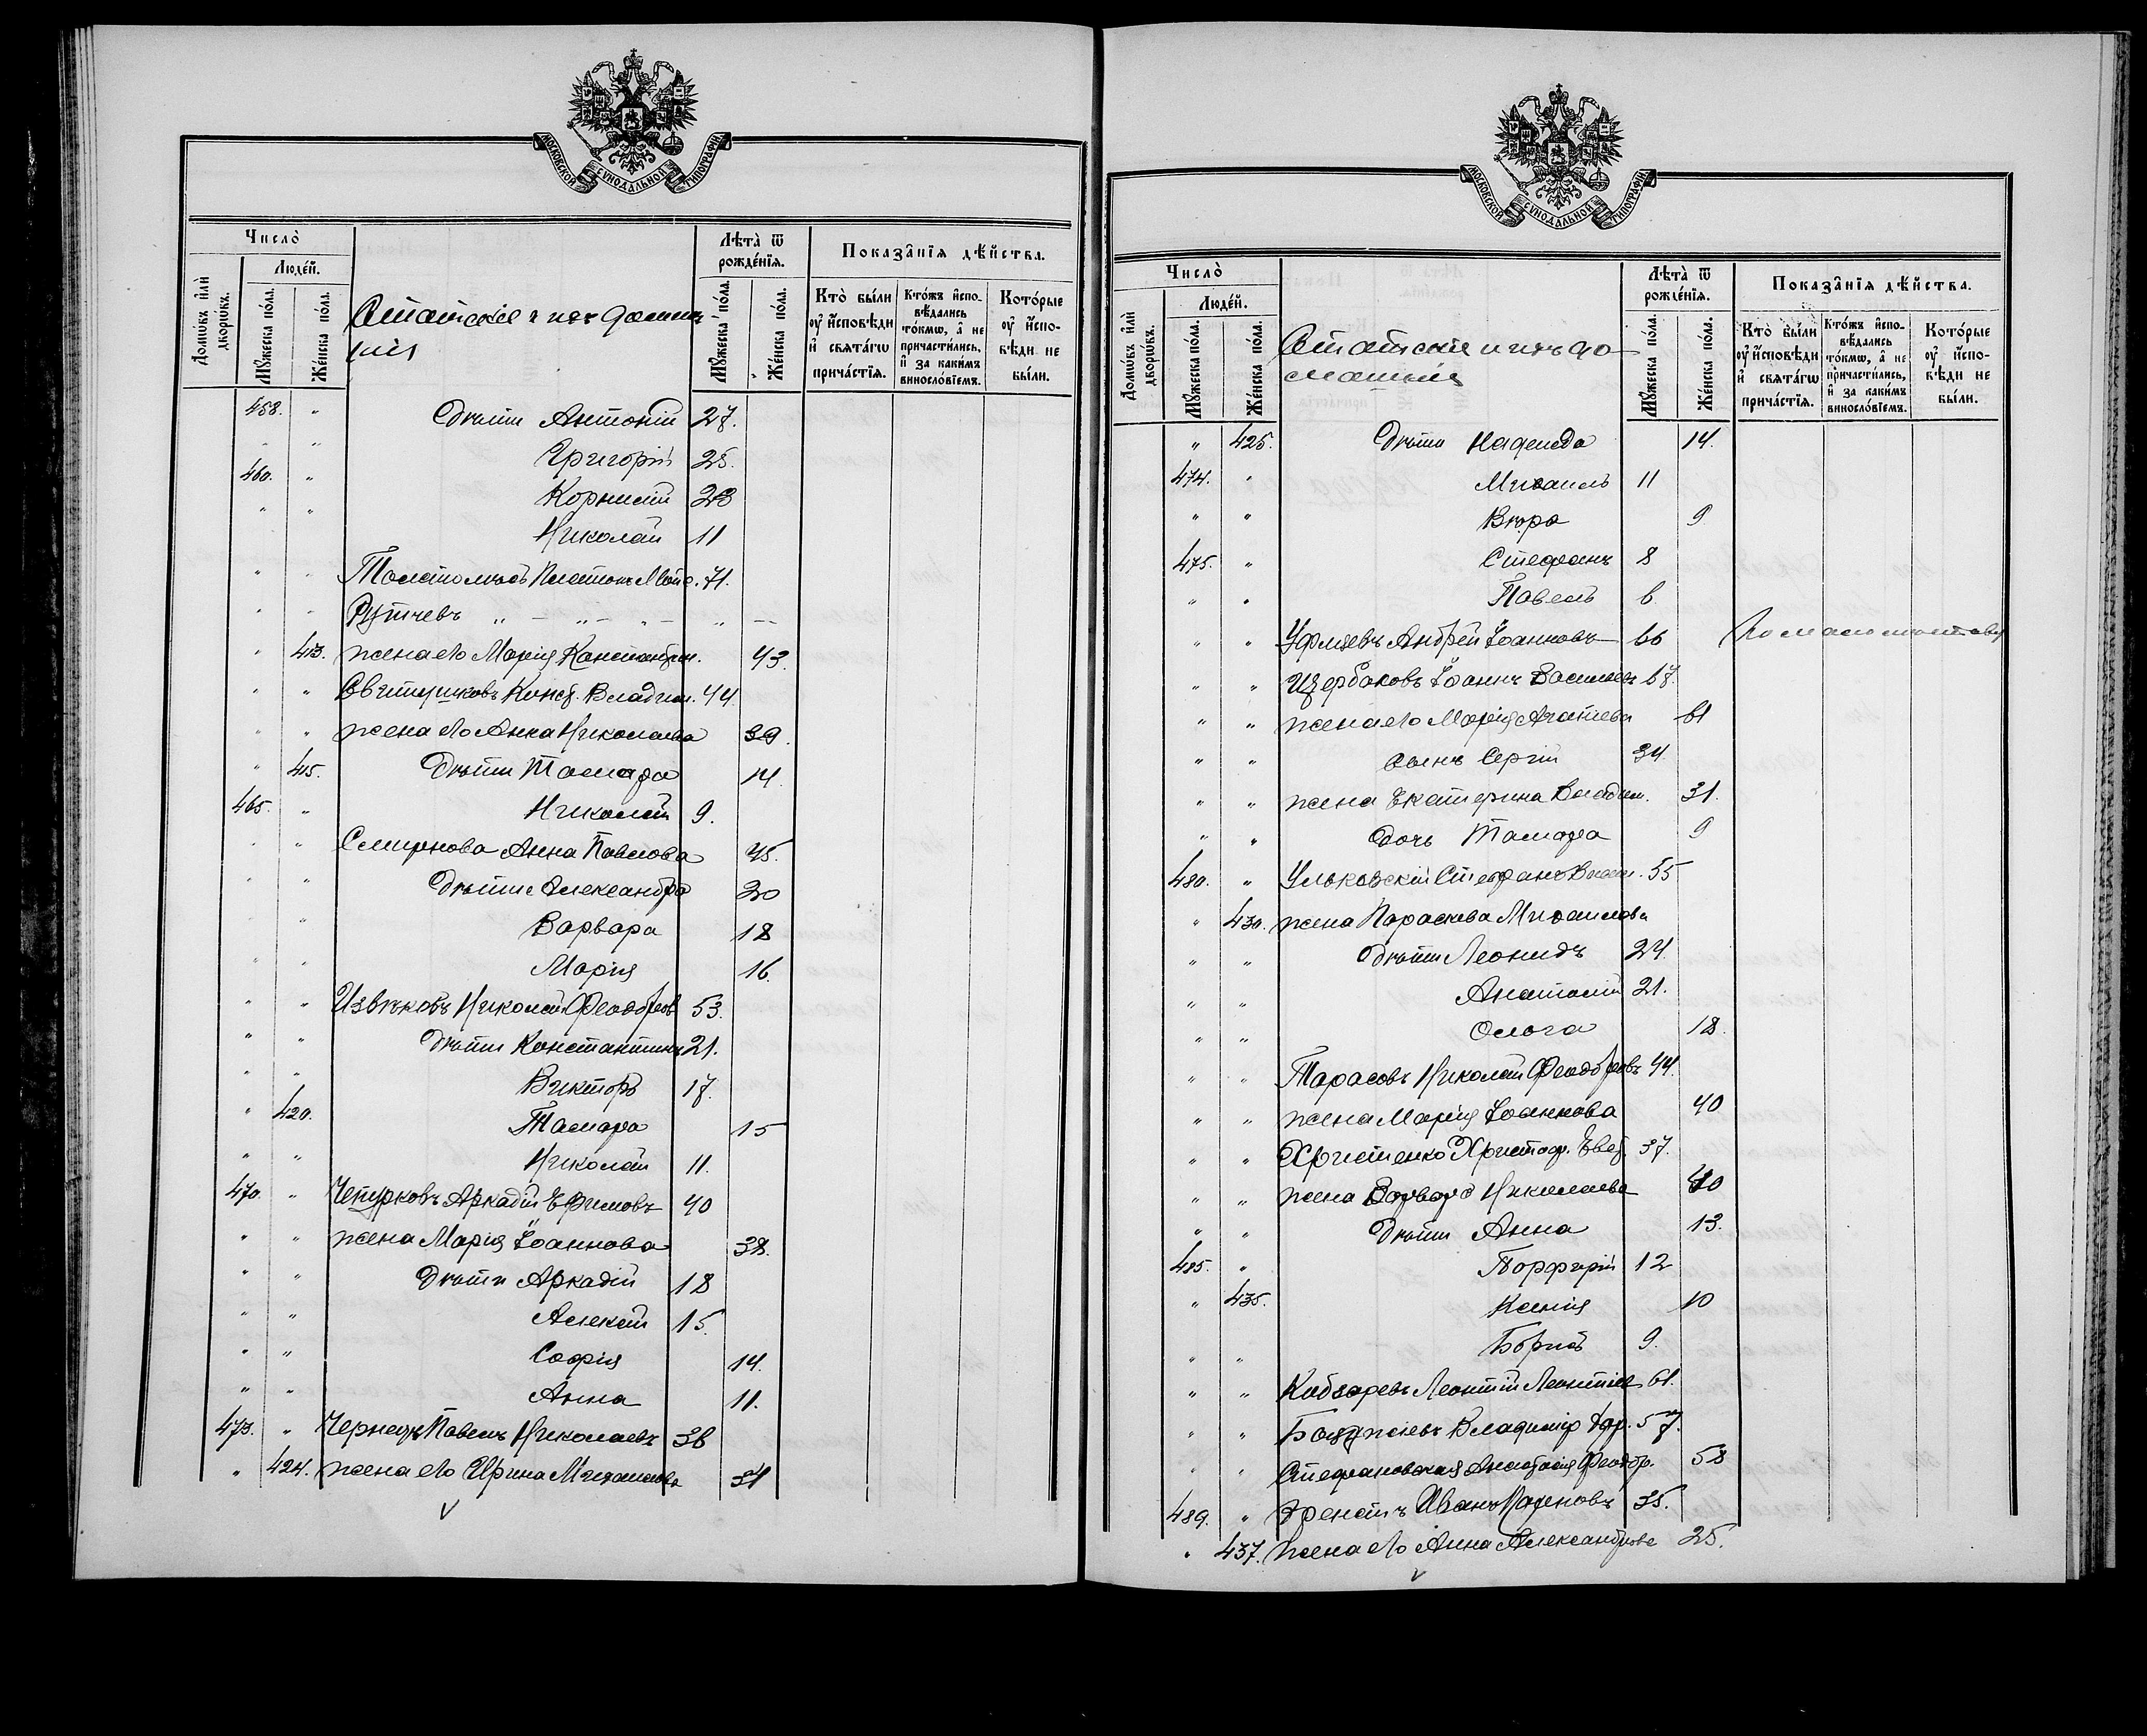 МОСКОВСКОЙ СѴНОДАЛЬНОЙ ТИПОГРАФІИ
Число̀
Людéй.
Домѡ́въ и҆лѝ дворѡ́въ.
Мꙋ́жеска по́ла.
Же́нска по́ла.
Статскіе и ихъ домаш-
ніе
Лѣ́та ѿ рожде́нїѧ.
Мꙋ́жеска по́ла.
Же́нска по́ла.
Показа̑нїѧ дѣ́йства.
Кто̀ бы́ли ᲂу҆ и҆сповѣ́ди и҆ свѧта́гѡ прича́стїѧ.
Кто́жъ и҆сповѣ́дались то́кмѡ, а҆ не причасти́лись, и҆ за каки́мъ винослóвїемъ.
Кото́рые ᲂу҆ и҆сповѣ́ди не бы́ли.
458. " дѣти Антоній 27.
" " Григорій 25.
460. " Корнилій 23
" " Николай 11
" " Платонъ 71.
" " " — " — " — " —
" 413. жена его Марія Констант. 43.
" " Конст. Владим. 44.
" " жена его Анна Николаева 39.
" 415. дѣти Тамара 14.
465. " Николай 9.
" " Смирнова Анна Павлова 45.
" " дѣти Александра 20
" " Варвара 18
" " Марія 16.
" " Извѣковъ Николай Феодоров 53.
" " дѣти Константинъ 21.
" " Викторъ 17.
" 420. Тамара 15
" " Николай 11.
470. " Чепурковъ Аркадій Ефимовъ 40
" " жена Марія Іоаннова 38.
" " дѣти Аркадій 18
" " Алексій 15.
" " Софія 14.
" " Анна 11.
473. " Павелъ Николаевъ 36
" 424. жена его Ирина Михаилова 34
МОСКОВСКОЙ СѴНОДАЛЬНОЙ ТИПОГРАФІИ
Число̀
Людéй.
Домѡ́въ и҆лѝ дворѡ́въ.
Мꙋ́жеска по́ла.
Же́нска по́ла.
Статскіе и ихъ до-
машніе
Лѣ́та ѿ рожде́нїѧ.
Мꙋ́жеска по́ла.
Же́нска по́ла.
Показа̑нїѧ дѣ́йства.
Кто̀ бы́ли ᲂу҆ и҆сповѣ́ди и҆ свѧта́гѡ прича́стїѧ.
Кто́жъ и҆сповѣ́дались то́кмѡ, а҆ не причасти́лись, и҆ за каки́мъ винослóвїемъ.
Кото́рые ᲂу҆ и҆сповѣ́ди не бы́ли.
" 425. дѣти Надежда 14.
474. " Михаилъ 11
" " Вѣра 9
475. " Стефанъ 8
" " Павелъ 6
" " Андрей Іоанновъ 66
" " Щербаковъ Іоаннъ Васильевъ 67.
" " жена его Марія 61
" " сынъ Сергій 34.
" " жена Екатерина Владим. 31.
" " дочь Тамара 9
480. " Ульковскій Стефанъ 55
" 430. жена Параскева Михаилова
" " дѣти Леонидъ 24.
" " Анатолій 21.
" " Ольга 18.
" " Тарасовъ Николай Феодоровъ 44.
" " жена Марія Іоаннова 40
" " Христенко Христоф. 37.
" " жена Варвара Николаева 40
" " дѣти Анна 13.
485. " Порфирій 12
" 435. Ксенія 10
" " Борисъ 9.
" " Кобзаревъ Леонтій Леонтіев 61.
" " Владимір 57.
" " Стефановская Анастасія Феодор. 58
489. " Иванъ 35.
" 437. жена его Анна Александрова 25.